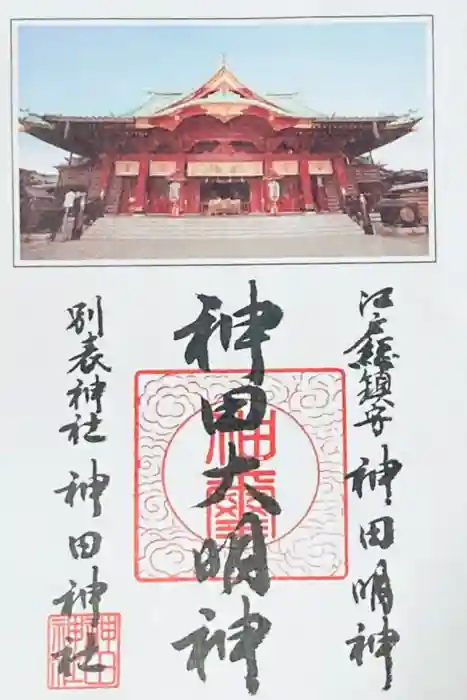 江戸總鎮守 神田明神
神田大明神
別表神社 神田神社
神璽
神田神社